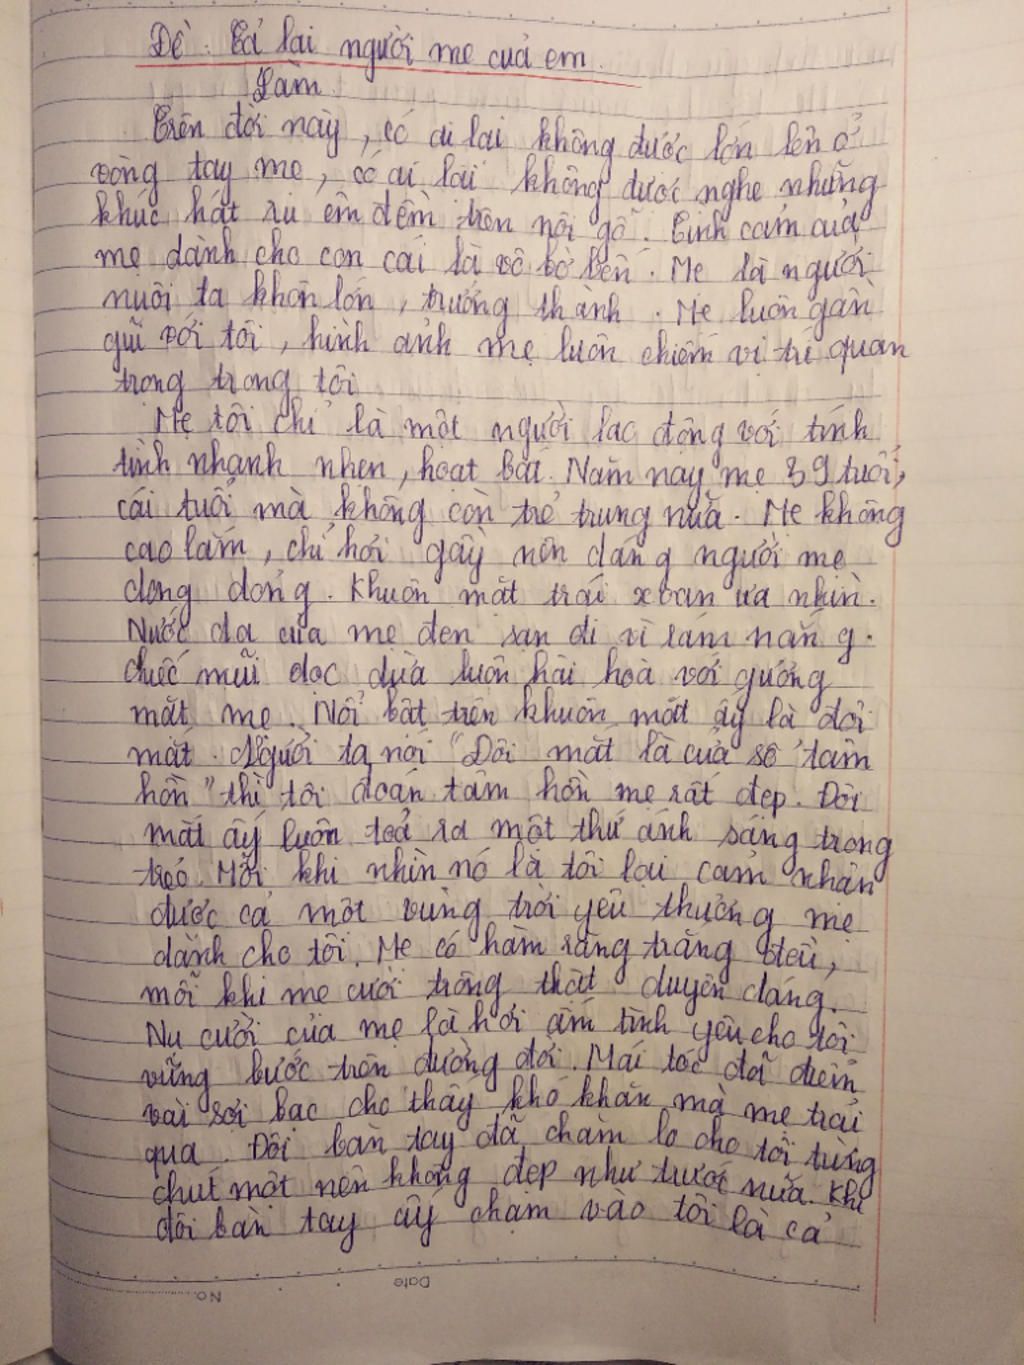 Đề: Tả lại người mẹ của em.
Làm.
Trên đời này, có ai lại không được lớn lên ở
vòng tay mẹ, có ai lại không được nghe những
khúc hát ru êm đềm trên nôi gỗ. Tình cảm của
mẹ dành cho con cái là vô bờ bến. Mẹ là người
nuôi ta khôn lớn, trưởng thành. Mẹ luôn gần
gũi với tôi, hình ảnh mẹ luôn chiếm vị trí quan
trọng trong tôi
Mẹ tôi chỉ là một người lao động với tính
tình nhanh nhẹn, hoạt bát. Năm nay mẹ 39 tuổi,
cái tuổi mà không còn trẻ trung nữa. Mẹ không
cao lắm, chỉ hơi gầy nên dáng người mẹ
dong dỏng. Khuôn mặt trái xoan ưa nhìn.
Nước da của mẹ đen sạn đi vì rám nắng.
Chiếc mũi dọc dừa luôn hài hoà với gương
mặt mẹ. Nổi bật trên khuôn mặt ấy là đôi
mắt. Người ta nói "Đôi mắt là cửa sổ tâm
hồn" thì tôi đoán tâm hồn mẹ rất đẹp. Đôi
mắt ấy luôn toả ra một thứ ánh sáng trong
trẻo. Mỗi khi nhìn nó là tôi lại cảm nhận
được cả một vùng trời yêu thương mẹ
dành cho tôi. Mẹ có hàm răng trắng đều,
mỗi khi mẹ cười trông thật duyên dáng.
Nụ cười của mẹ là hơi ấm tình yêu cho tôi
vững bước trên đường đời. Mái tóc đã điểm
vài sợi bạc cho thấy khó khăn mà mẹ trải
qua. Đôi bàn tay đã chăm lo cho tôi từng
chút một nên không đẹp như trước nữa. Khi
đôi bàn tay ấy chạm vào tôi là cả
Date
No.